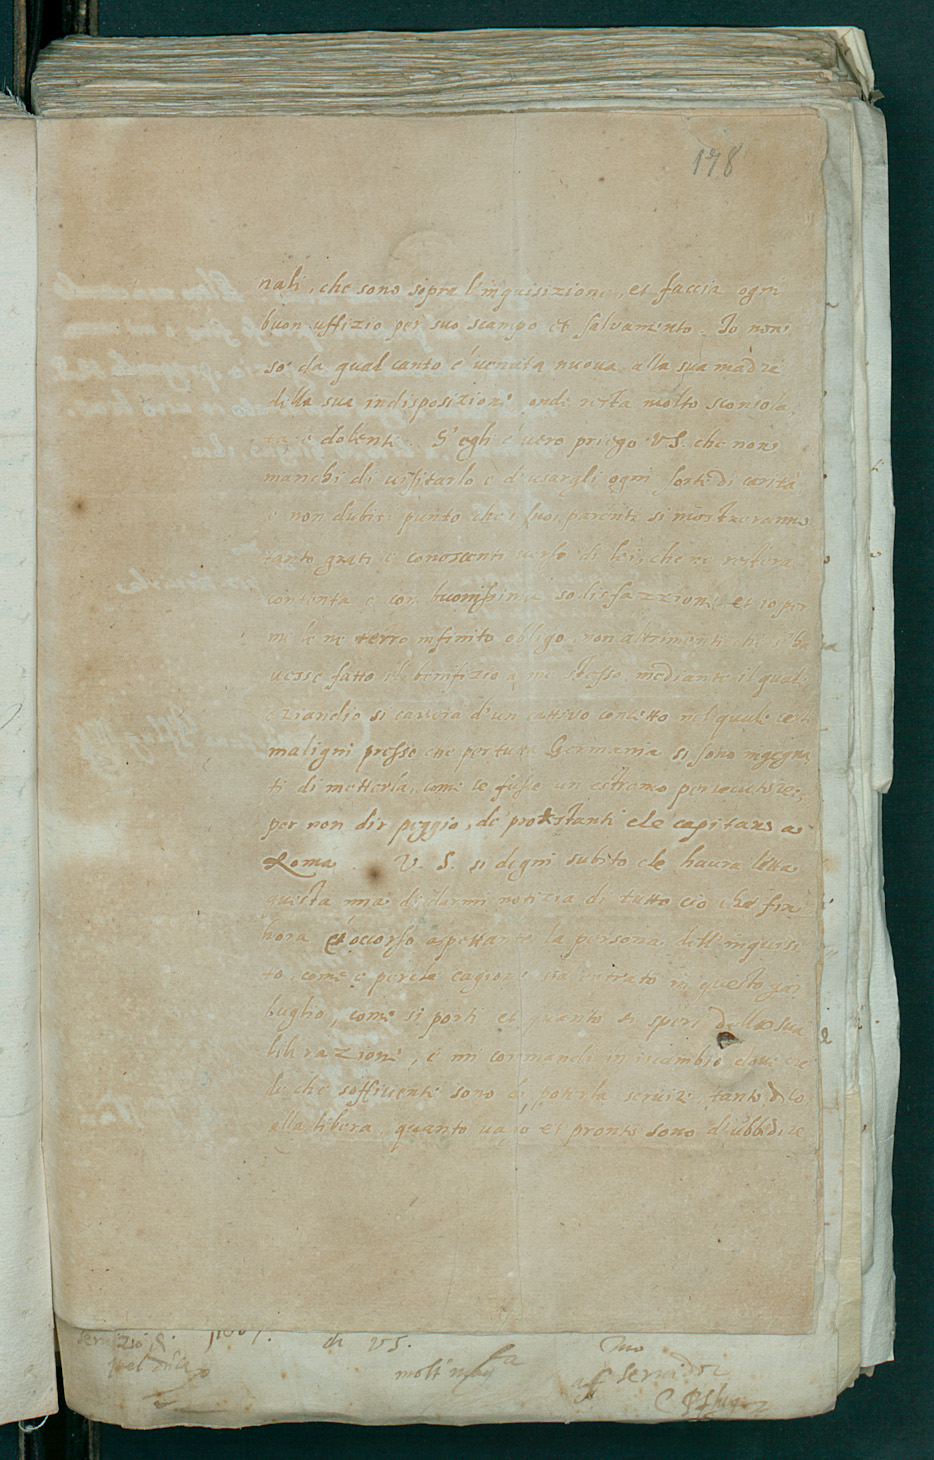 178
nali, che sono sopra l'inquisizione, et faccia ogni
buon uffizio per suo scampo et salvamento. Io non
so da qual canto e' venuta nuova alla sua madre
della sua indisposizione onde resta molto sconsola
ta e dolente. S'egli e' vero priego VS. che non
manchi di visitarlo e d'usargli ogni sorte di carità
e non dubiti punto che i suoi parenti si mostreranno
tanto grati e conoscenti verso di lei, che ne restera
contenta e con buonissima sodisfazzione et io per
me le ne terrò infinito obligo non altrimenti che s'ha
vesse fatto il benifizio a me stesso mediante il quale
eziandio si caverà d'un cattivo concetto nel quale certi
maligni presso che per tutta Germania si sono ingegna
ti di metterla, come se fusse un estremo persecutore,
per non dir peggio, de protestanti che capitano a
Roma. V. S. si degni subito che haura letta
questa mia di darmi notizia di tutto ciò che fin
hora è occorso aspettante la persona dell'inquisi
to come e per che cagione sia entrato in questo gar
buglio, come si porti et quanto si speri della sua
liberazione, e mi commandi in iscambio dove
che sofficiente sono di poterla servire, tanto
alla libera, quanto vago et pronto sono d'ubbidire
di VS.
servidor